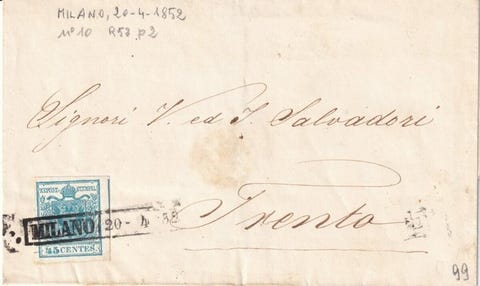 MILANO, 20-4-1852
n° 10 R53 p2
Signori V. ed I. Salvadori
KKPOST-STEMPEL
MILANO 20-4
45 CENTES.
Trento
99